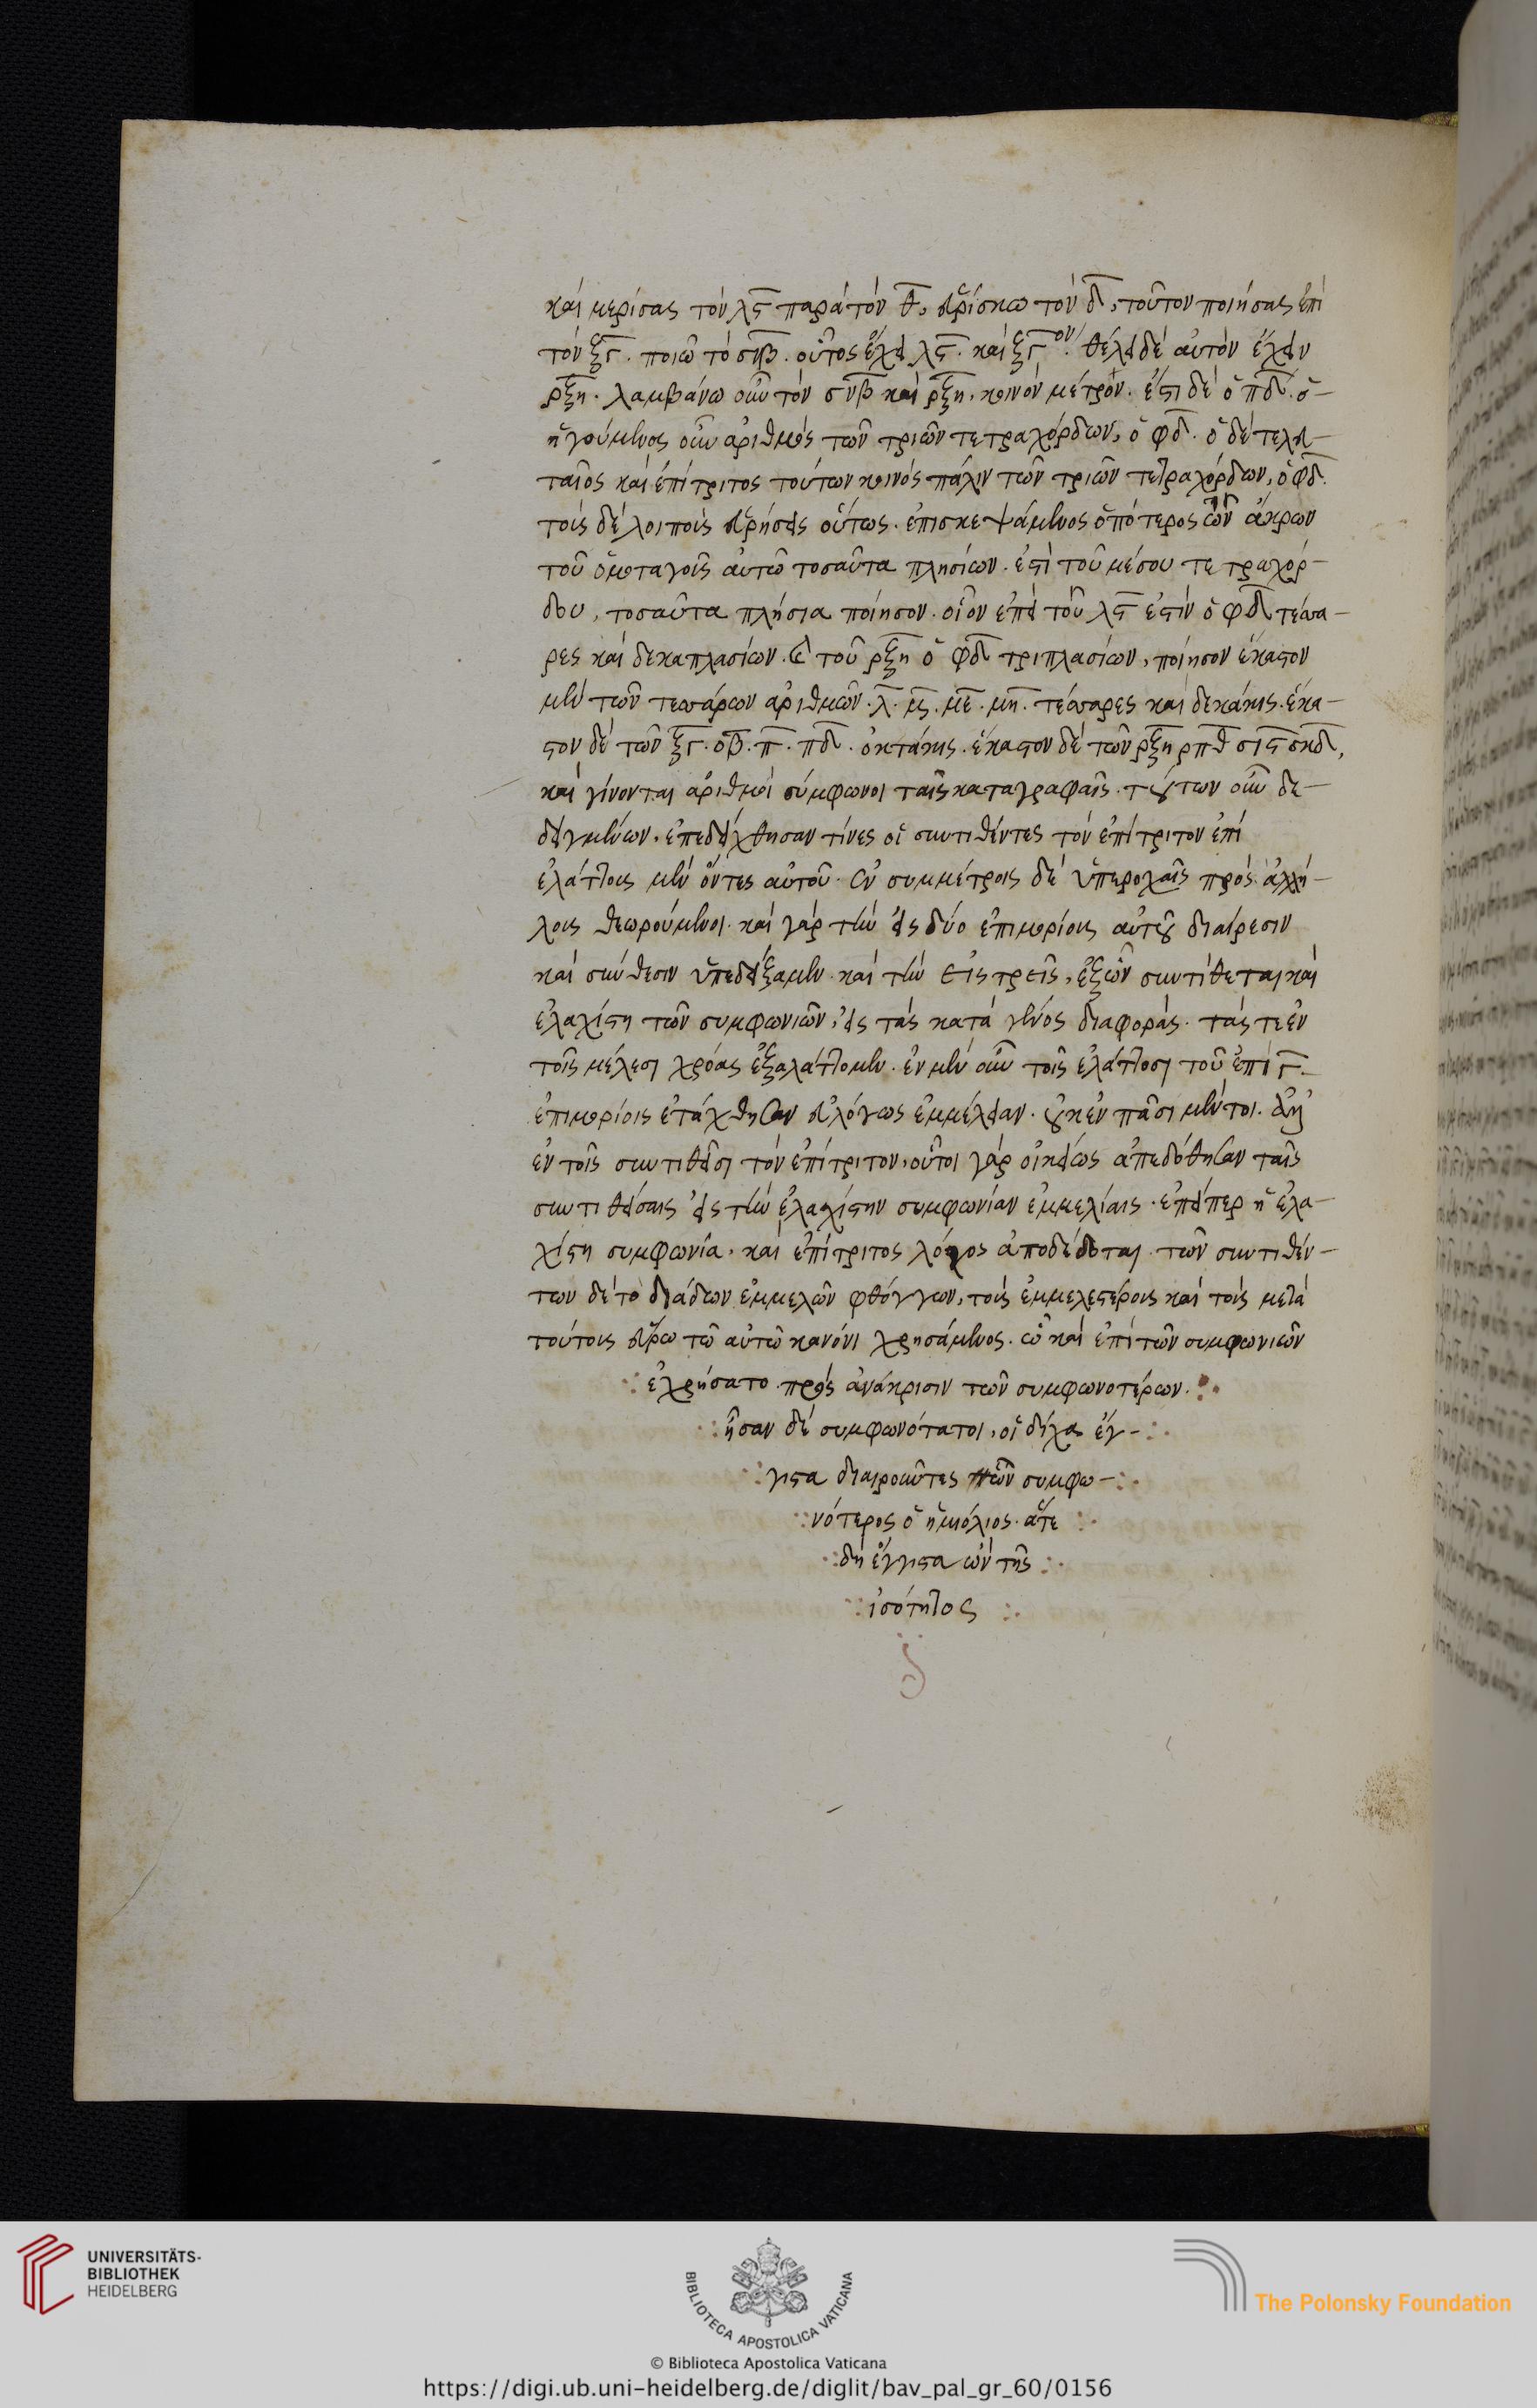 καὶ μερίσας τὸν λϛ παρὰ τὸν θ, εὑρίσκω τὸν δ, τοῦτον ποιήσας ἐπὶ
τὸν ξγ. ποιῶ τὸ σνβ. οὗτος ἔχει λϛ. καὶ ξγον. θέλει δὲ αὐτὸν ἔχειν
ρξη. λαμβάνω οὖν τὸν σνβ καὶ ρξη, κοινὸν μέτρον. ἔστι δὲ ὁ πδ. ὁ-
ἡγούμενος οὖν ἀριθμὸς τῶν τριῶν τετραχόρδων, ὁ φδ. ὁ δὲ τελευ-
ταῖος καὶ ἐπίτριτος τούτων κοινὸς πάλιν τῶν τριῶν τετραχόρδων, ὁ φδ.
τοὺς δὲ λοιποὺς εὑρήσεις οὕτως. ἐπισκεψάμενος ὁπότερος ἄκρων
τοῦ ὁμοταγοῦς αὐτῶ τοσαῦτα πλησίων. ἐστὶ τοῦ μέσου τετραχόρ-
δου, τοσαῦτα πλήσια ποίησον. οἷον ἐπεὶ τοῦ λϛ ἐστὶν ὁ φδ τέσσα-
ρες καὶ δεκαπλασίων. καὶ τοῦ ρξη ὁ φδ τριπλασίων, ποίησον ἕκαστον
μὲν τῶν τεσσάρων ἀριθμῶν. λ. μϛ. με. μη. τέσσαρες καὶ δεκάκις. ἕκα-
στον δὲ τῶν ξγ. οβ. π. πδ. ὀκτάκις. ἕκαστον δὲ τῶν ρξη ρπθ σιϛ σκδ,
καὶ γίνονται ἀριθμοὶ σύμφωνοι ταῖς καταγραφαῖς. τούτων οὖν δε-
δειγμένων, ἐπεδείχθησαν τίνες οἱ συντιθέντες τὸν ἐπίτριτον ἐπὶ
ἐλάττους μὲν ὄντες αὐτοῦ. ἐν συμμέτροις δὲ ὑπεροχαῖς πρὸς ἀλλή-
λους θεωρούμενοι. καὶ γὰρ τὴν εἰς δύο ἐπιμορίους αὐτοῦ διαίρεσιν
καὶ σύνθεσιν ὑπεδείξαμεν. καὶ τὴν εἰς τρεῖς, ἐξ ὧν συντίθεται καὶ
ἐλαχίστη τῶν συμφωνιῶν, εἰς τὰς κατὰ γένος διαφορὰς. τάς τε ἐν
τοῖς μέλεσι χρόας ἐξαλάττομεν. ἐν μὲν οὖν τοῖς ἐλάττοσι τοῦ ἐπὶ γ.
ἐπιμορίοις ἐτάχθησαν εὐλόγως ἐμμέλειαν. οὐκ ἐν πᾶσι μέντοι. ἀλλ'
ἐν τοῖς συντιθεῖσι τὸν ἐπίτριτον, οὗτοι γὰρ οἰκείως ἀπεδόθησαν ταῖς
συντιθείσαις εἰς τὴν ἐλαχίστην συμφωνίαν ἐμμελίαις. ἐπείπερ ἡ ἐλα-
χίστη συμφωνία, καὶ ἐπίτριτος λόγος ἀποδέδοται. τῶν συντιθέν-
των δὲ τὸ διάδων ἐμμελῶν φθόγγων, τοὺς ἐμμελεστέρους καὶ τοὺς μετὰ
τούτοις εὕρω τῶ αὐτῶ κανόνι χρησάμενος. ὧ καὶ ἐπὶ τῶν συμφωνιῶν
ἐχρήσατο πρὸς ἀνάκρισιν τῶν συμφωνοτέρων.
ἦσαν δὲ συμφωνότατοι, οἱ δίχα ἔγ-
γιστα διαιροῦντες τῶν συμφω-
νότερος ὁ ἡμιόλιος. ἅτε
δὴ ἔγγιστα ὢν τῆς
ἰσότητος
UNIVERSITÄTS-
BIBLIOTHEK
HEIDELBERG
BIBLIOTECA APOSTOLICA VATICANA
The Polonsky Foundation
© Biblioteca Apostolica Vaticana
https://digi.ub.uni-heidelberg.de/diglit/bav_pal_gr_60/0156